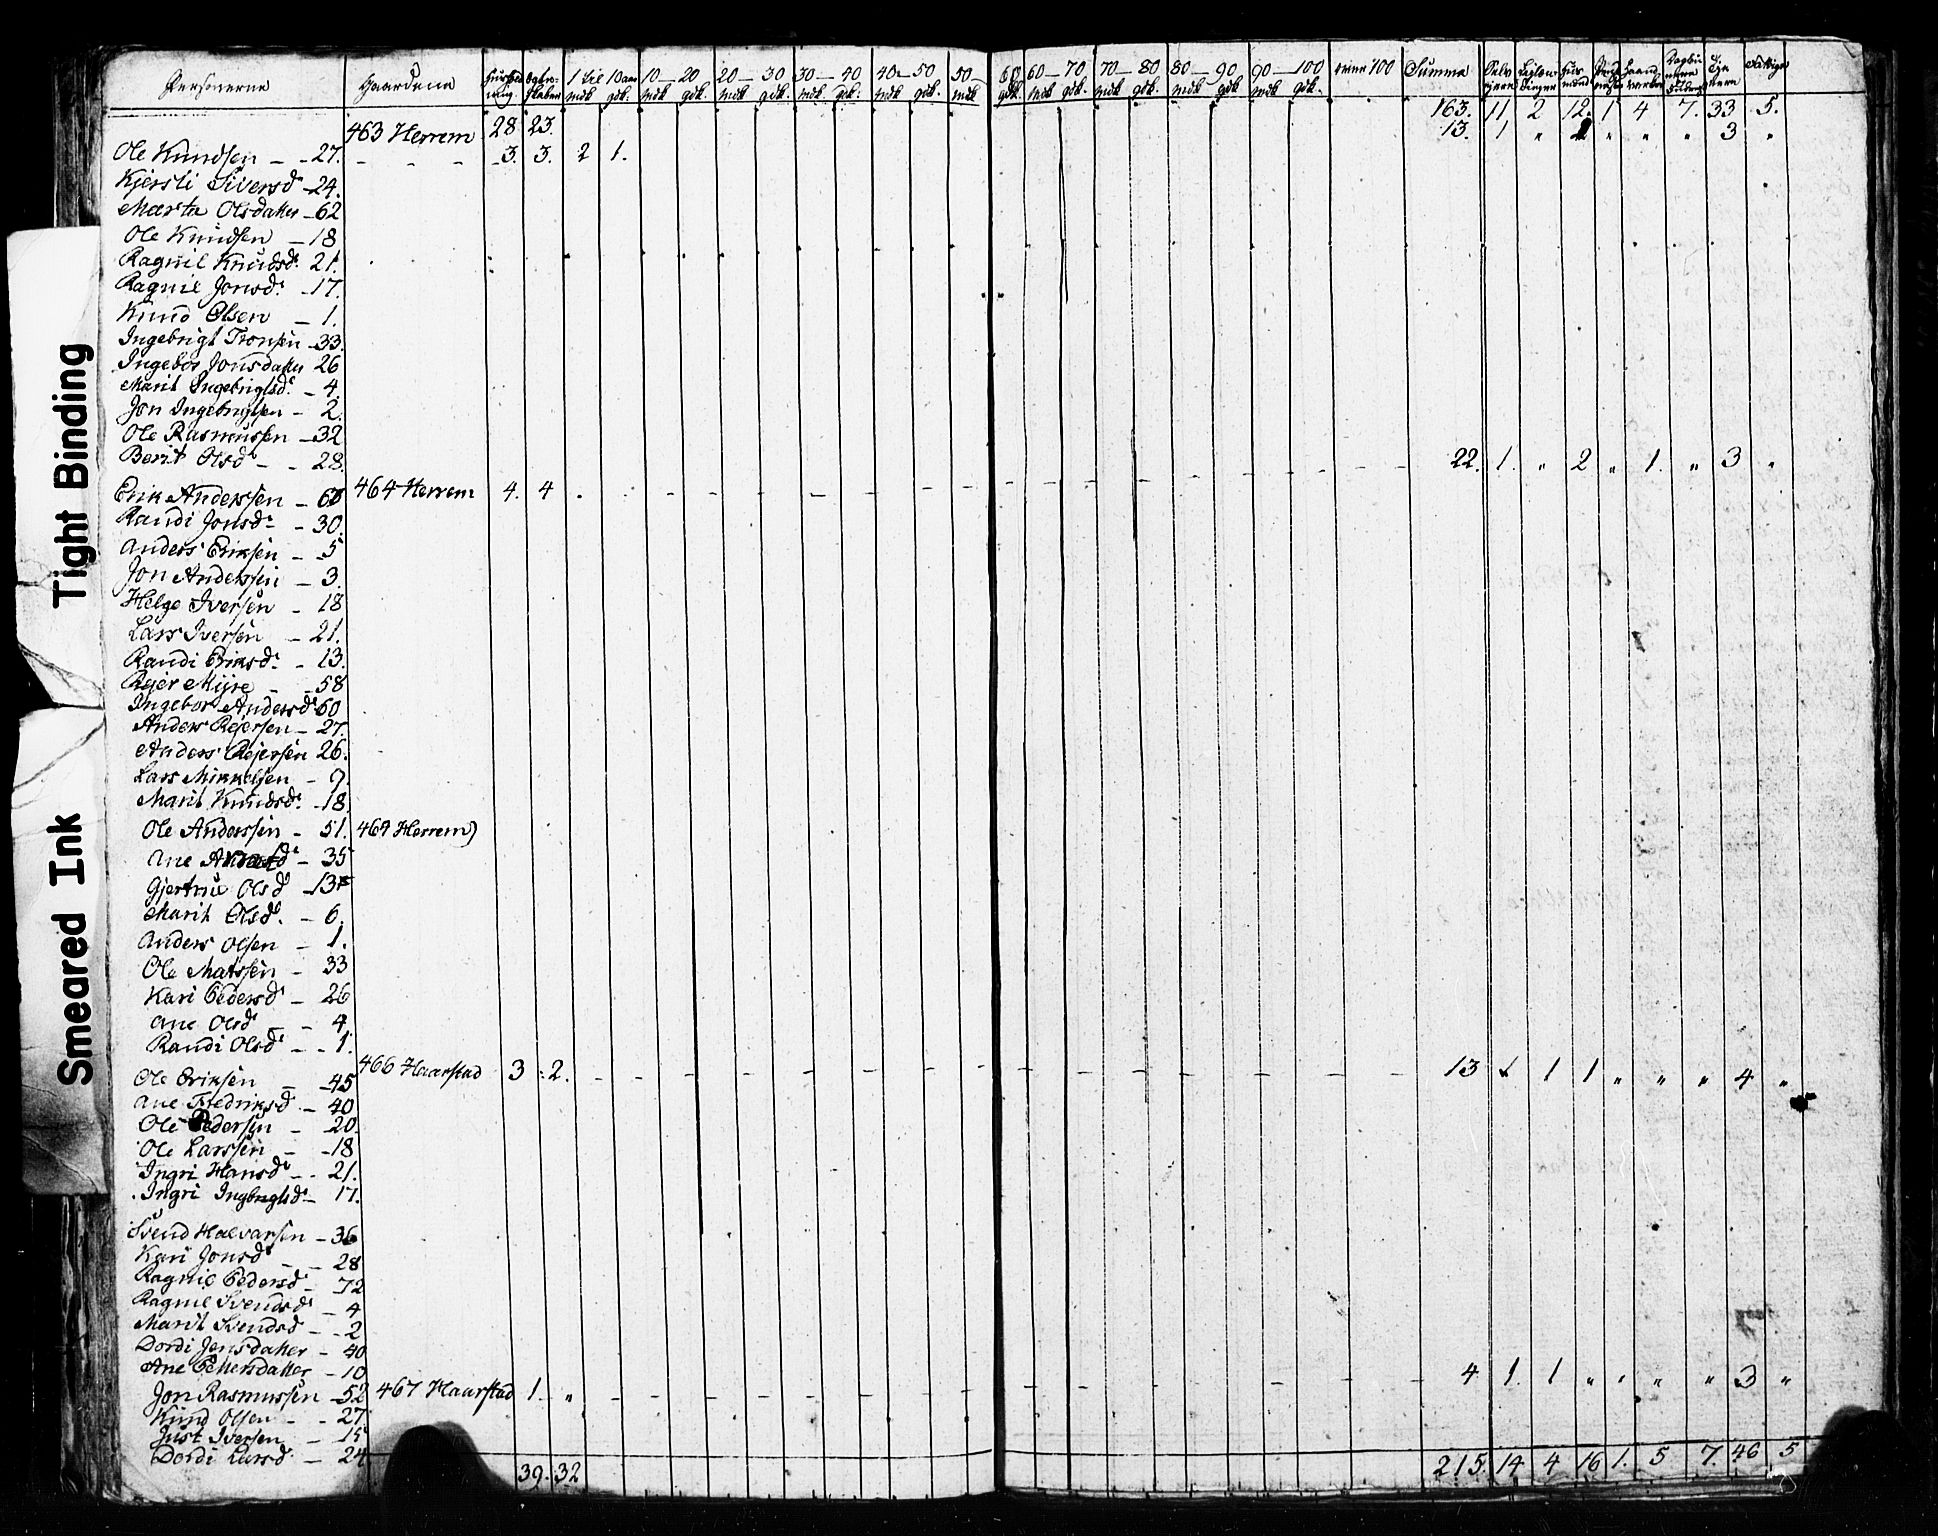 Personerne Gaardene 1 til 10 aar 10 — 20 20 — 30 30 — 40 40 — 50 50 — 60 60 — 70 70 — 80 80 — 90 90 — 100 over 100 Summa
mdk gdk. mdk gdk. mdk gdk. mdk gdk. mdk gdk. mdk gdk. mdk gdk. mdk gdk. mdk gdk. mdk gdk.
163. 11 2 12. 1 4 7. 33 5.
463 Herrem 28 23. 13. 1 „ „ „ „ 3 „
Ole Knudsen — 27. - - - 3. 3. 2 1.
Kjersti Siversd. 24.
Marta Olsdatter — 62
Ole Knudsen — 18
Ragnil Knudsd. 21.
Ragnil Jonsd. 17.
Knud Olsen — 1.
Ingebrigt Tronsen 33.
Ingebor Jonsdatter 26
Marit Ingebrigtsd. — 4.
Jon Ingebrigtsen — 2.
Ole Rasmussen — 32
Berit Olsd — 28. 22. 1. „ 2 „ 1. „ 3 „
Erik Anderssen — 60 464 Herrem 4. 4
Randi Jonsd. — 30.
Anders Eriksen — 5
Jon Anderssen — 3.
Helge Iversen — 18
Lars Iversen — 21.
Randi Eriksd. — 13.
Rejer Myre — 58
Ingebor Andersd. 60
Anders Rejersen — 27.
Anders Rejersen 26.
Lars Mikkelsen — 9.
Marit Knudsd. — 18.
Ole Anderssen — 51. 464 Herrem)
Ane — 35
Gjertru Olsd 13
Marit Olsd. — 6.
Anders Olsen — 1.
Ole Matssen — 33
Kari Pedersd — 26
Ane Olsd — 4
Randi Olsd — 1.
466 Haarstad 3 2. 13 1 1 1 „ „ „ 4 „
Ole Eriksen — 45
Ane Fredriksd — 40
Ole Pedersen — 20.
Ole Larssen — 18
Ingri Hansd — 21.
Ingri Ingbrigtsd — 17.
Svend Halvarsen — 36
Kari Jonsd — 28
Ragnil Pedersd — 72
Ragnil Svendsd — 4
Marit Svendsd — 2
Dordi Jensdatter — 40
Ane Pettersdatter — 10 4 1. 1 „ „ „ „ 3 „
Jon Rasmussen — 52 467 Haarstad 1. „
Knud Olsen — 27.
Just Iversen — 15
Dordi Larsd — 24
39. 32 215. 14 4 16 1. 5 7. 46 5
Tight Binding
Smeared Ink